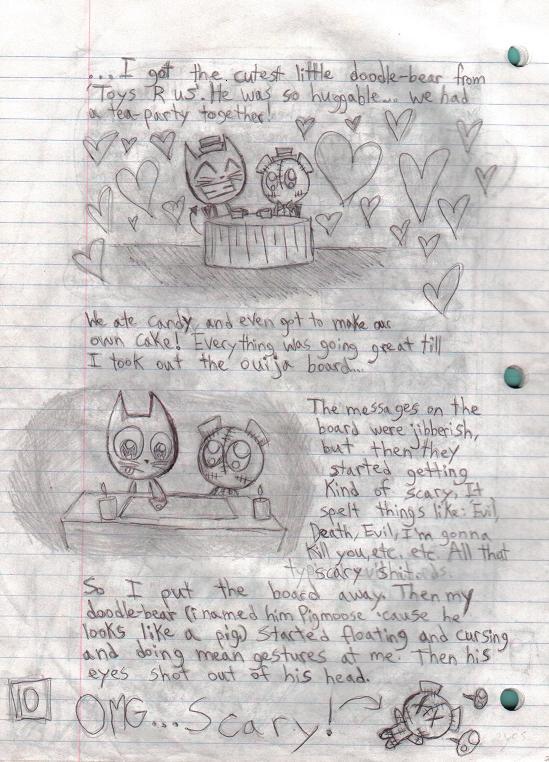 ...I got the cutest little doodle-bear from
"Toys R us". He was so huggable... we had
a tea-party together!
We ate candy, and even got to make our
own cake! Everything was going great till
I took out the ouija board...
The messages on the
board were jibberish,
but then they
started getting
kind of scary. It
spelt things like: Evil,
Death, Evil, I'm gonna
Kill you, etc. etc. All that
scary shit.
So I put the board away. Then my
doodle-bear (i named him Pigmoose 'cause he
looks like a pig) started floating and cursing
and doing mean gestures at me. Then his
eyes shot out of his head.
10
OMG...Scary!
eyes